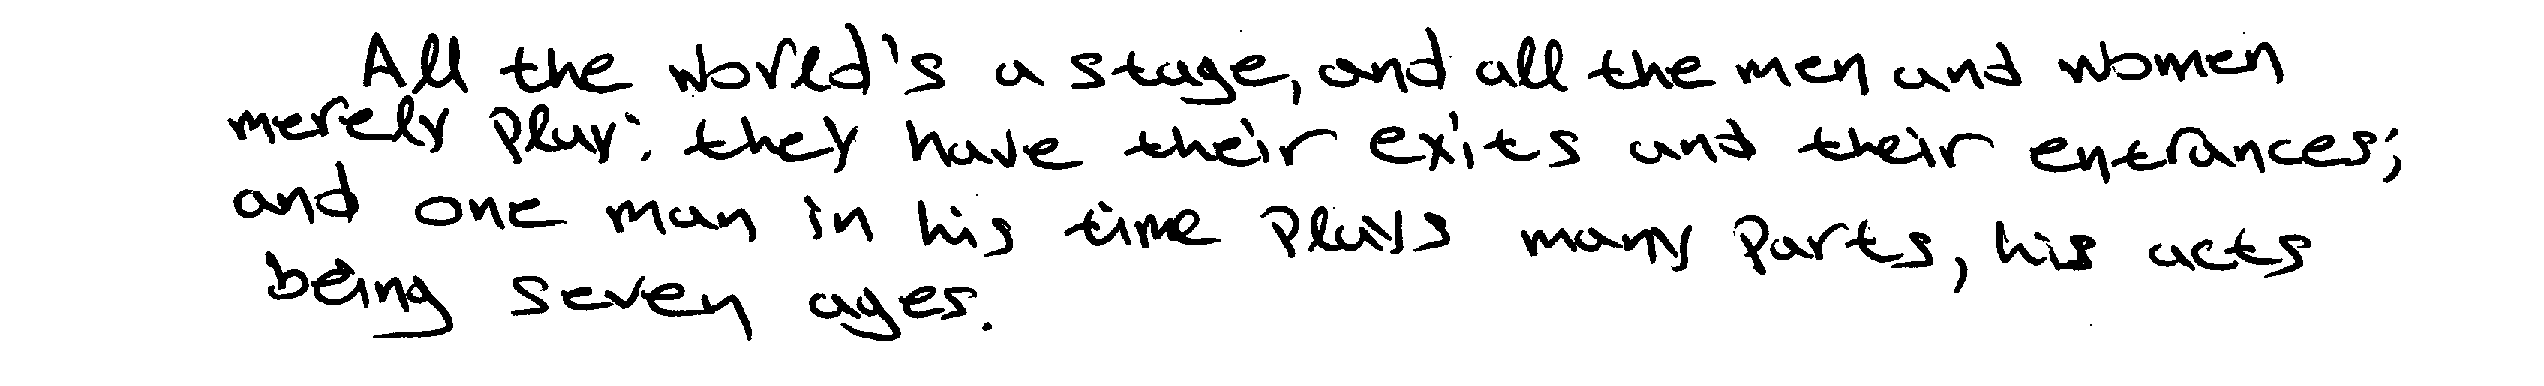 All the world's a stage, and all the men and women
merely play: they have their exits and their entrances;
and one man in his time plays many parts, his acts
being seven ages.